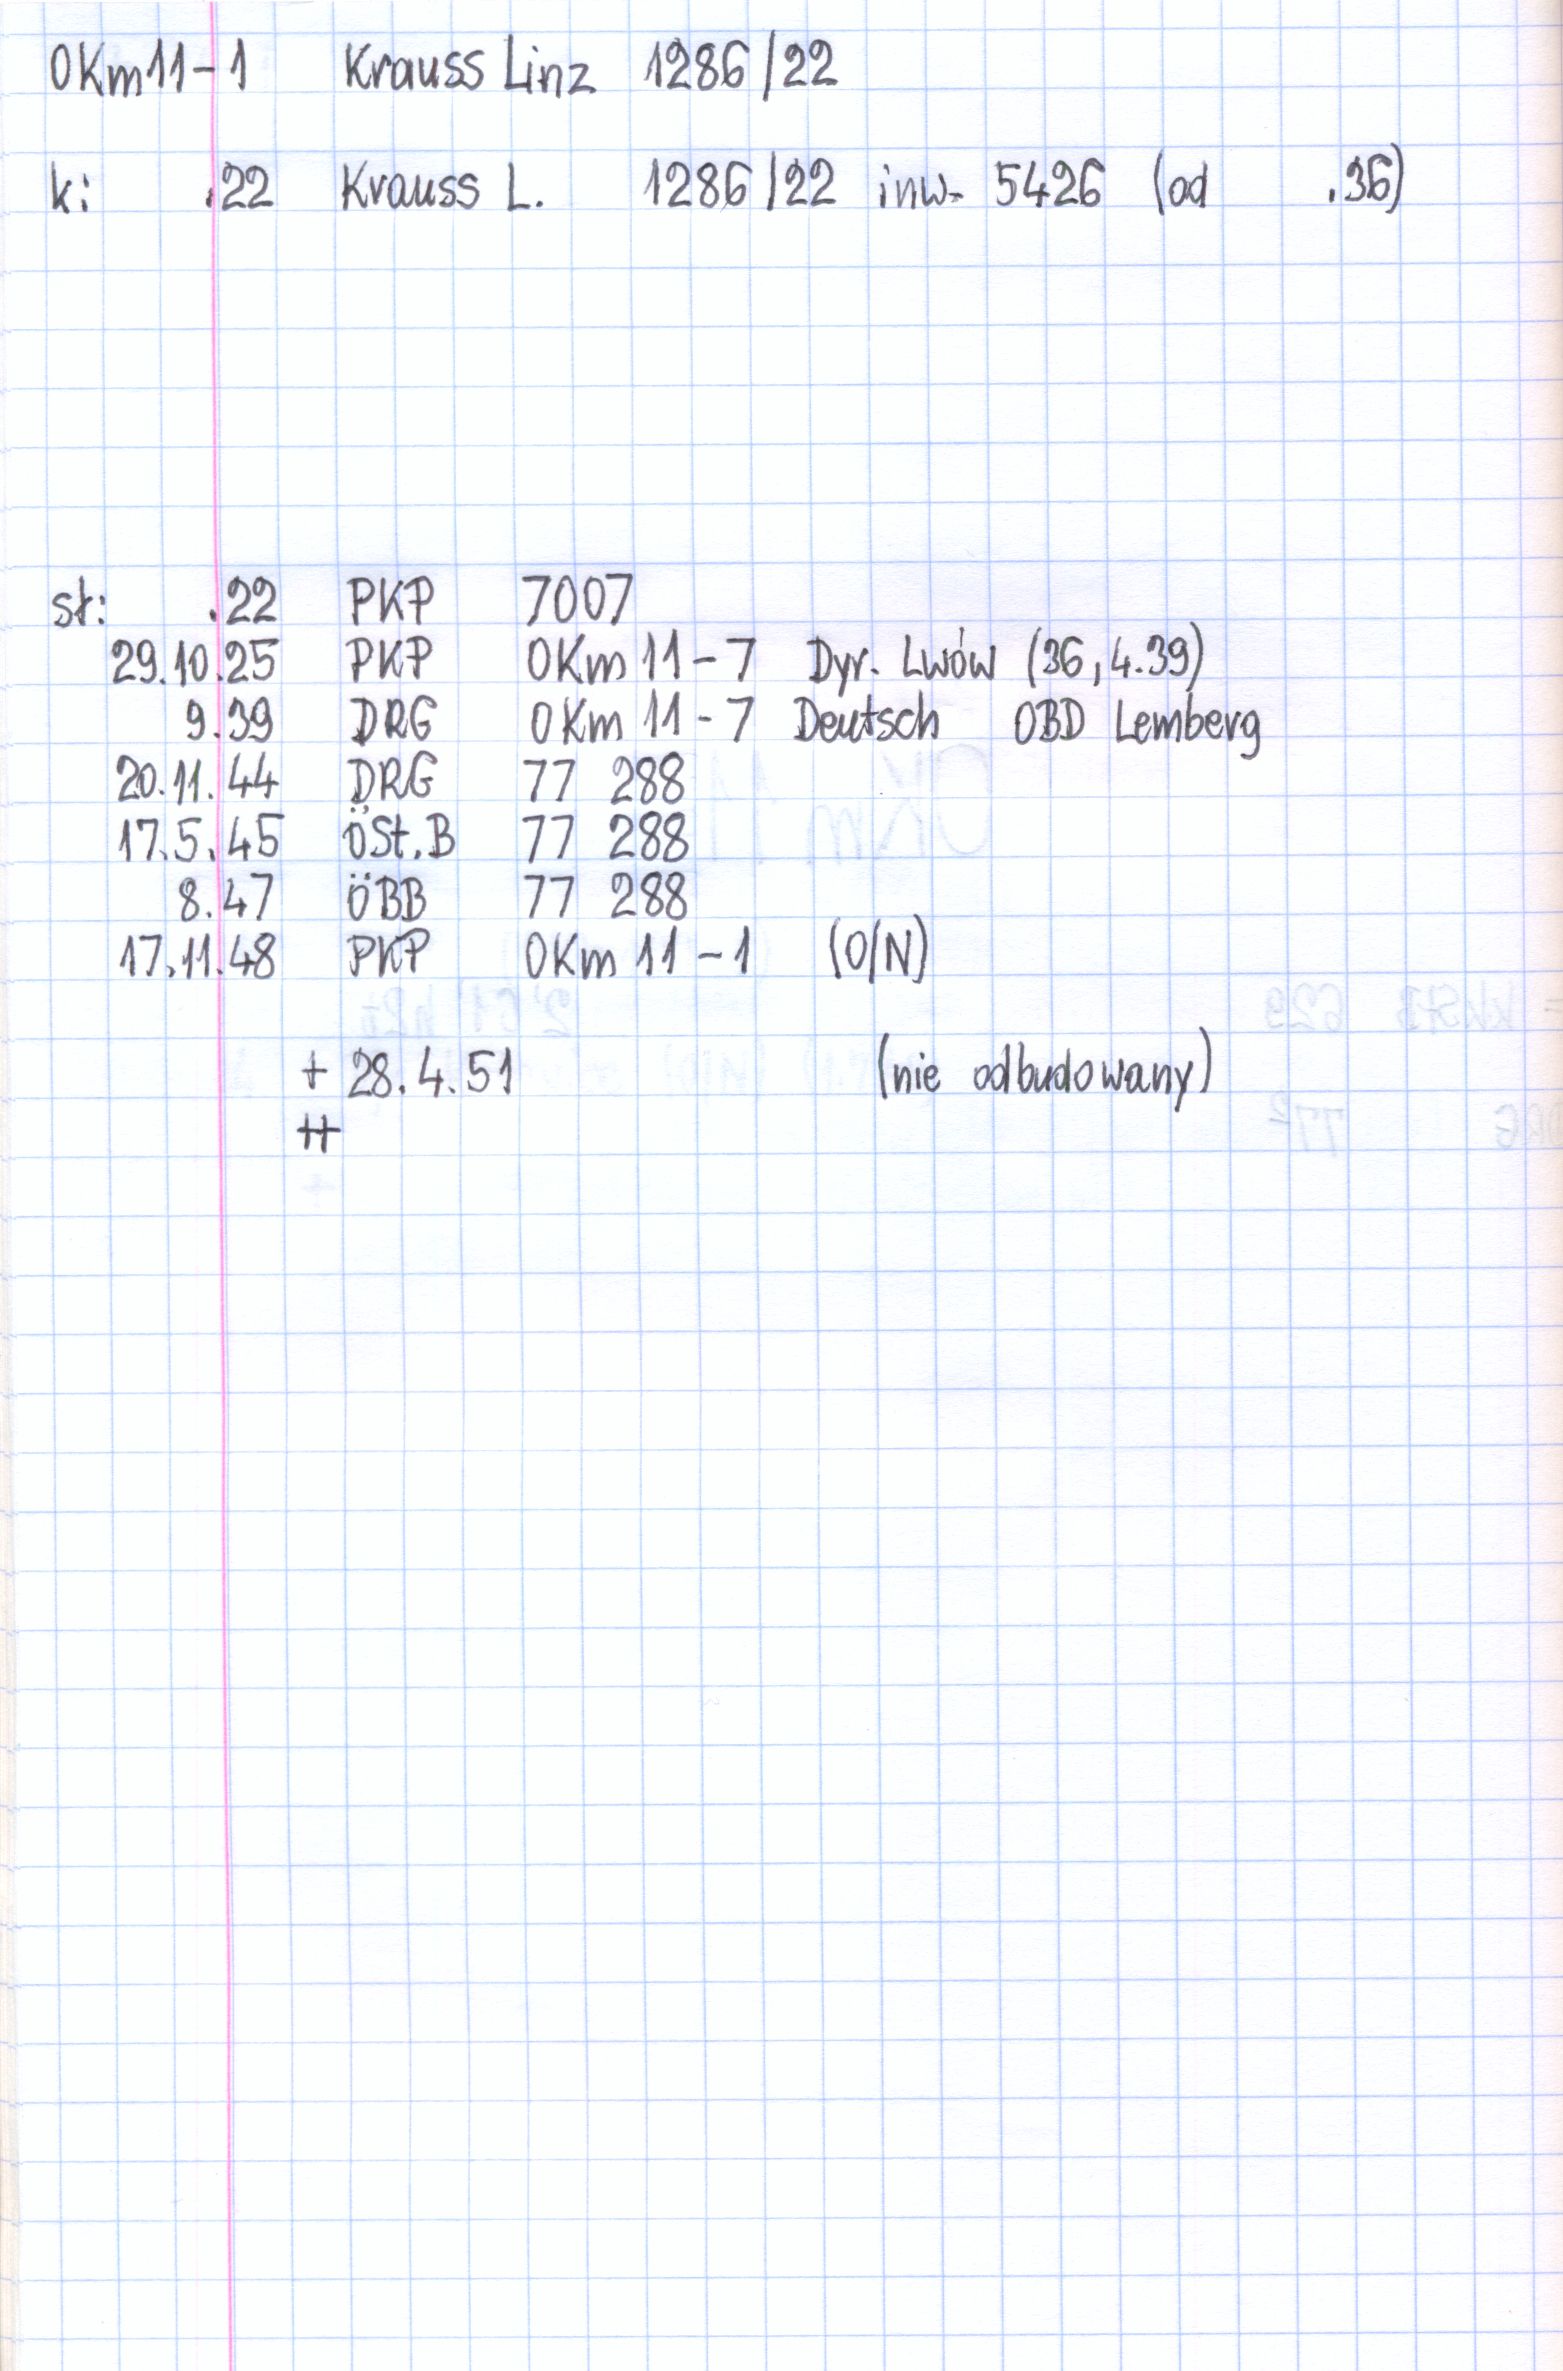 OKm11-1 Krauss Linz 1286/22
k: .22 Krauss L. 1286/22 inw. 5426 (od .36)
st: .22 PKP 7007
29.10.25 PKP OKm 11-7 Dyr. Lwów (36, 4.39)
9.39 DRG OKm 11-7 Deutsch OBD Lemberg
20.11.44 DRG 77 288
17.5.45 ÖSt.B 77 288
8.47 ÖBB 77 288
17.11.48 PKP OKm 11-1 (O/N)
+ 28.4.51 (nie odbudowany)
++